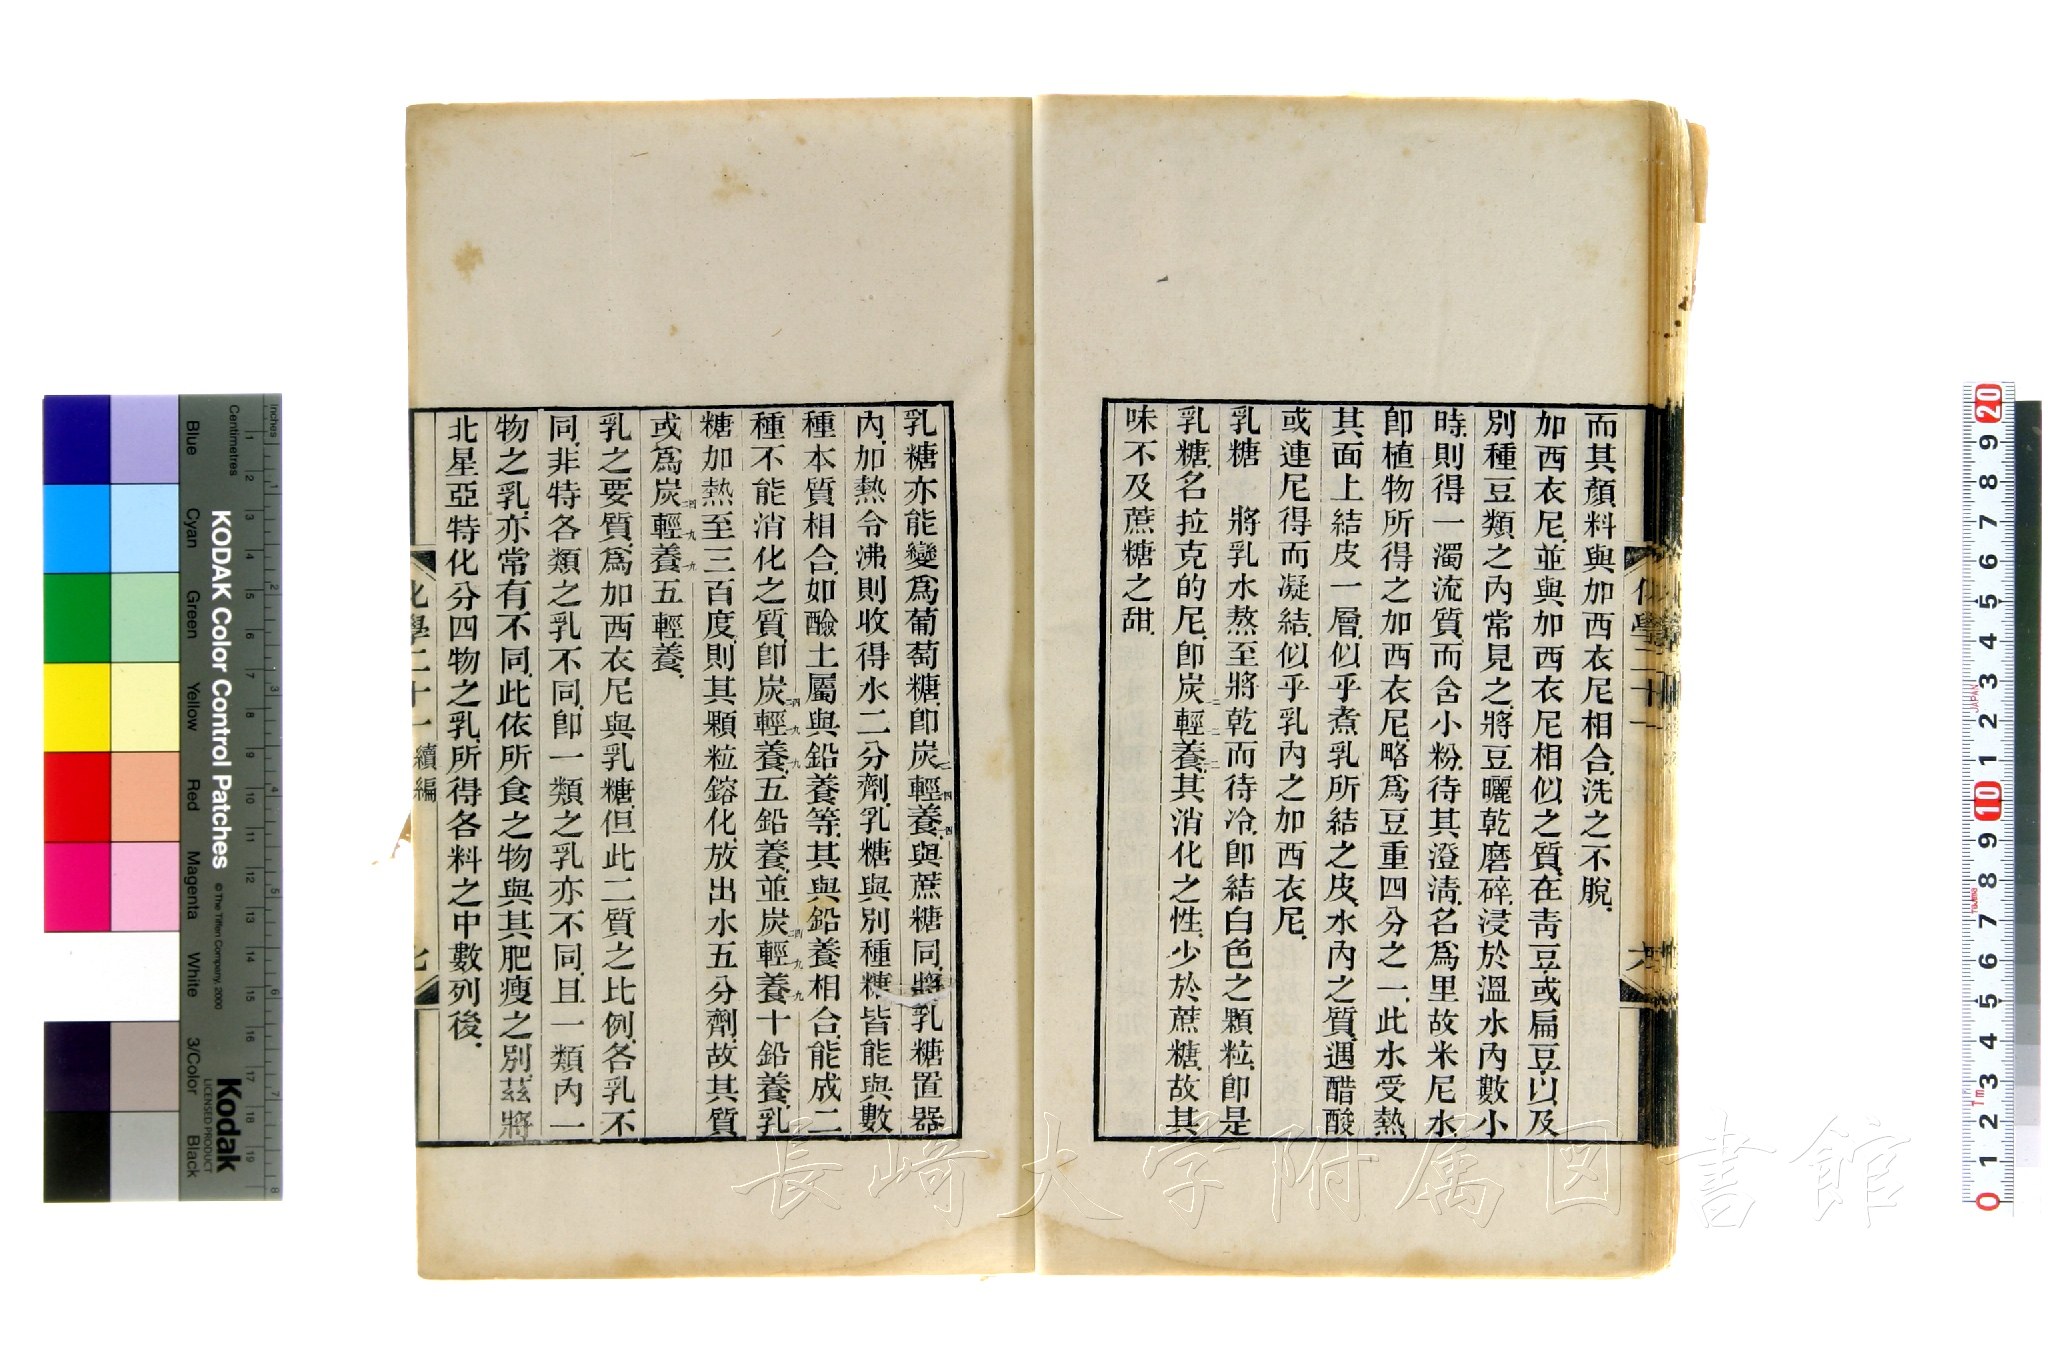 而其顏料與加西衣尼相合洗之不脫
加西衣尼並與加西衣尼相似之質在靑豆或扁豆以及
別種豆類之內常見之將豆曬乾磨碎浸於溫水內數小
時則得一濁流質而含小粉待其澄淸名爲里故米尼水
卽植物所得之加西衣尼略爲豆重四分之一此水受熱
其面上結皮一層似乎煮乳所結之皮水內之質遇醋酸
或連尼得而凝結似乎乳內之加西衣尼
乳糖　將乳水熬至將乾而待冷卽結白色之顆粒卽是
乳糖名拉克的尼卽炭輕養其消化之性少於蔗糖故其
味不及蔗糖之甜
乳糖亦能變爲葡萄糖卽炭輕養與蔗糖同將乳糖置器
內加熱令沸則收得水二分劑乳糖與別種糖皆能與數
種本質相合如鹼土屬與鉛養等其與鉛養相合能成二
種不能消化之質卽炭輕養五鉛養並炭輕養十鉛養乳
糖加熱至三百度則其顆粒鎔化放出水五分劑故其質
或爲炭輕養五輕養
乳之要質爲加西衣尼與乳糖但此二質之比例各乳不
同非特各類之乳不同卽一類之乳亦不同且一類內一
物之乳亦常有不同此依所食之物與其肥瘦之別茲將
北星亞特化分四物之乳所得各料之中數列後
化學二十一 續編
七
化學二十一
六
長崎大学附属図書館
KODAK Color Control Patches
© The Tiffen Company, 2000
Kodak
LICENSED PRODUCT
Inches
Centimetres
Blue
Cyan
Green
Yellow
Red
Magenta
White
3/Color
Black
JAPAN